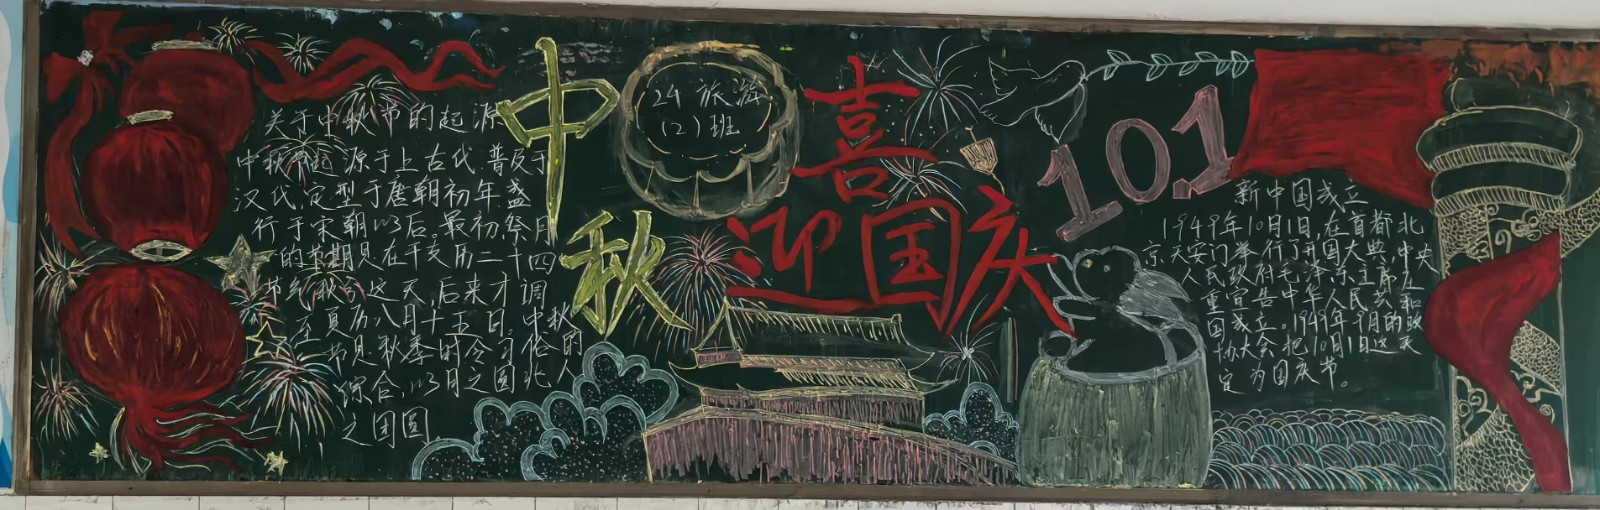 关于中秋节的起源
中秋节起源于上古代,普及于
汉代,定型于唐朝初年,盛
行于宋朝以后。最初,祭月
的节期是在干支历二十四
节气秋分这天,后来才调
至夏历八月十五日,中秋
节是秋季时令习俗的
综合,以月之圆兆人
之团圆
中秋
24旅游
(2)班
喜
迎国庆
101
新中国成立
1949年10月1日,在首都北
京天安门举行了开国大典,中央
人民政府毛泽东主席庄
重宣告中华人民共和
国成立。1949年
协大会把10月1日这天
定为国庆节。